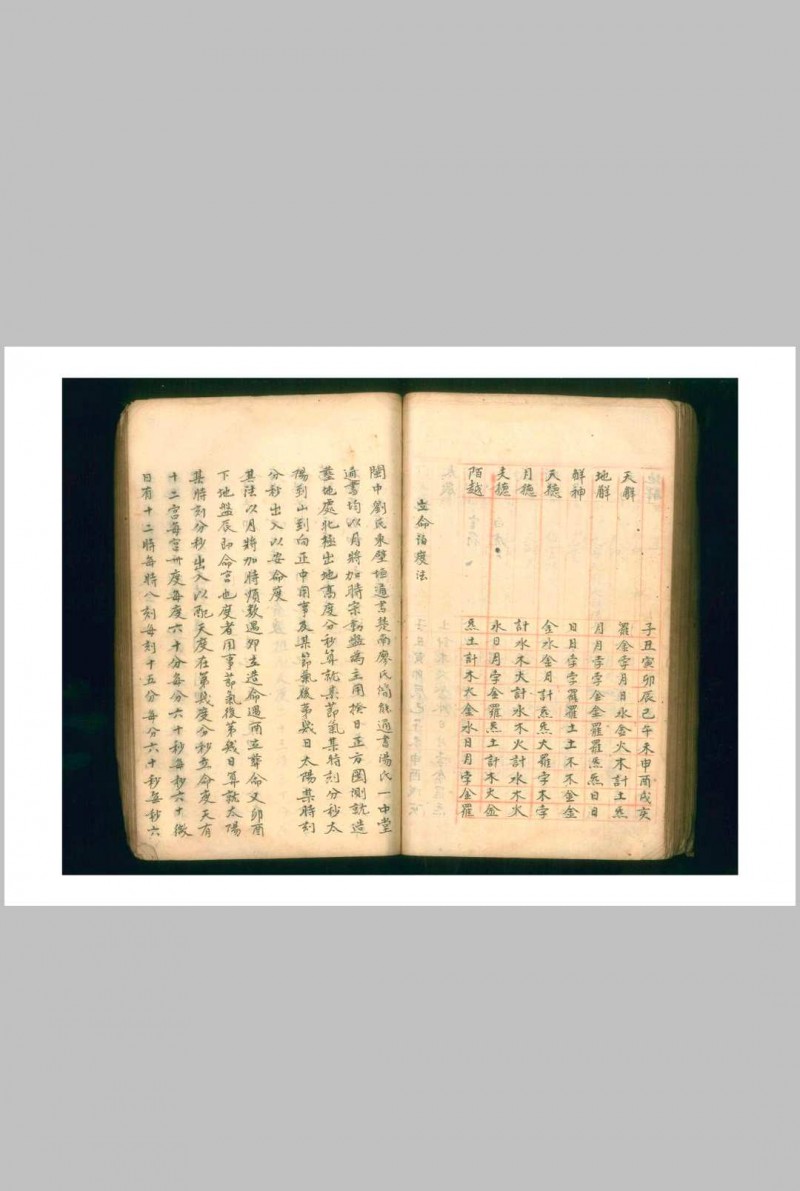 子丑寅卯辰巳午未申酉戌亥
天解 羅金孛月日水金火木計土炁
地解 月月孛孛金金羅羅炁炁日日
解神 日日孛孛羅羅土土木木金金
天德 金水金月計炁炁火羅孛木孛
月德 計水木火計水木火計水木火
天德 水日月孛金羅炁土計木火金
陌越 炁土計木火金水日月孛金羅
立命宿度法
閩中劉氏東壁垣通書楚南廖氏簡能通書湯氏一中堂
通書均以月將加時案動盤為主用挨日正方圖測就造
塟地處北極出地高度分秒算就某節氣某時刻分秒太
陽到山到向正中用事及某節氣後第幾日太陽某時刻
分秒出入以安命度
其法以月將加時順數遇卯立造命遇酉立葬命又卯酉
下地盤辰即命宮也度者用事節氣後第幾日算就太陽
某時刻分秒出入以配天度在第幾度分秒立命度天有
十二宮每宮卅度每度六十分每分六十秒每秒六十微
日有十二時每時八刻每刻十五分每分六十秒每秒六